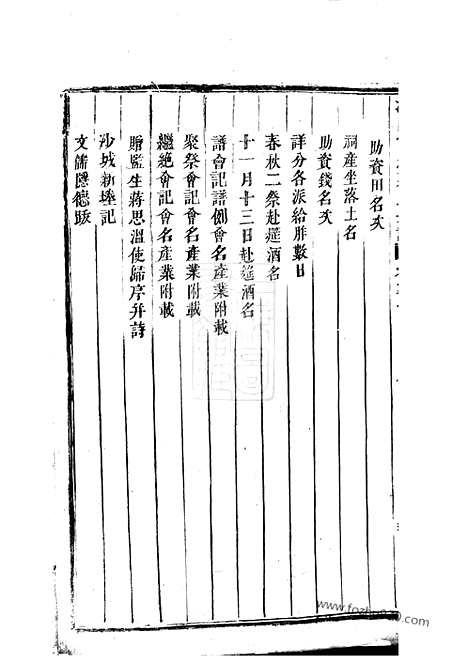 助資田名次
祠產坐落土名
助資錢名次
詳分各派給胙數目
春秋二祭赴筵酒名
十一月十三日赴筵酒名
譜會記譜例會名產業附載
聚祭會記會名產業附載
繼絶會記會名產業附載
贈監生蔣思溫使歸序并詩
沙城新墶記
文儒隱德䟦
www.fozhu920.com